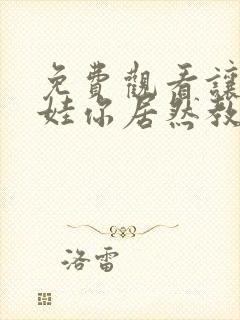 免費觀看讓
娃你居然教
洛雷